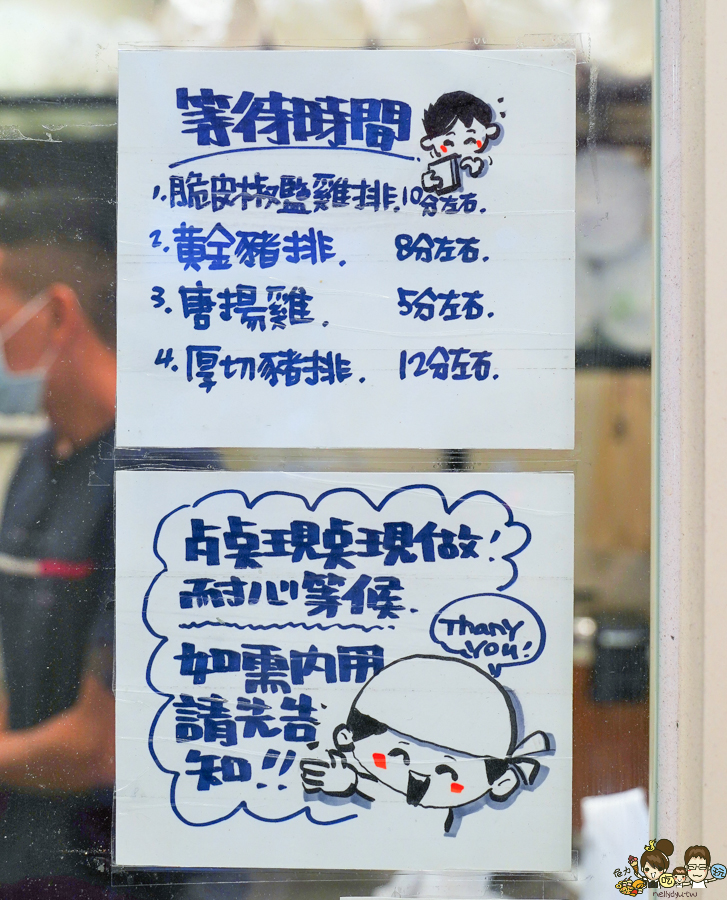 等待時間
1.脆皮椒鹽雞排.10分左右.
2.黃金豬排. 8分左右.
3.唐揚雞. 5分左右.
4.厚切豬排. 12分左右.
桌現桌現做!
耐心等候.
Thank
you!
如需內用
請先告
知!!
吃
玩
nellydyu.tw